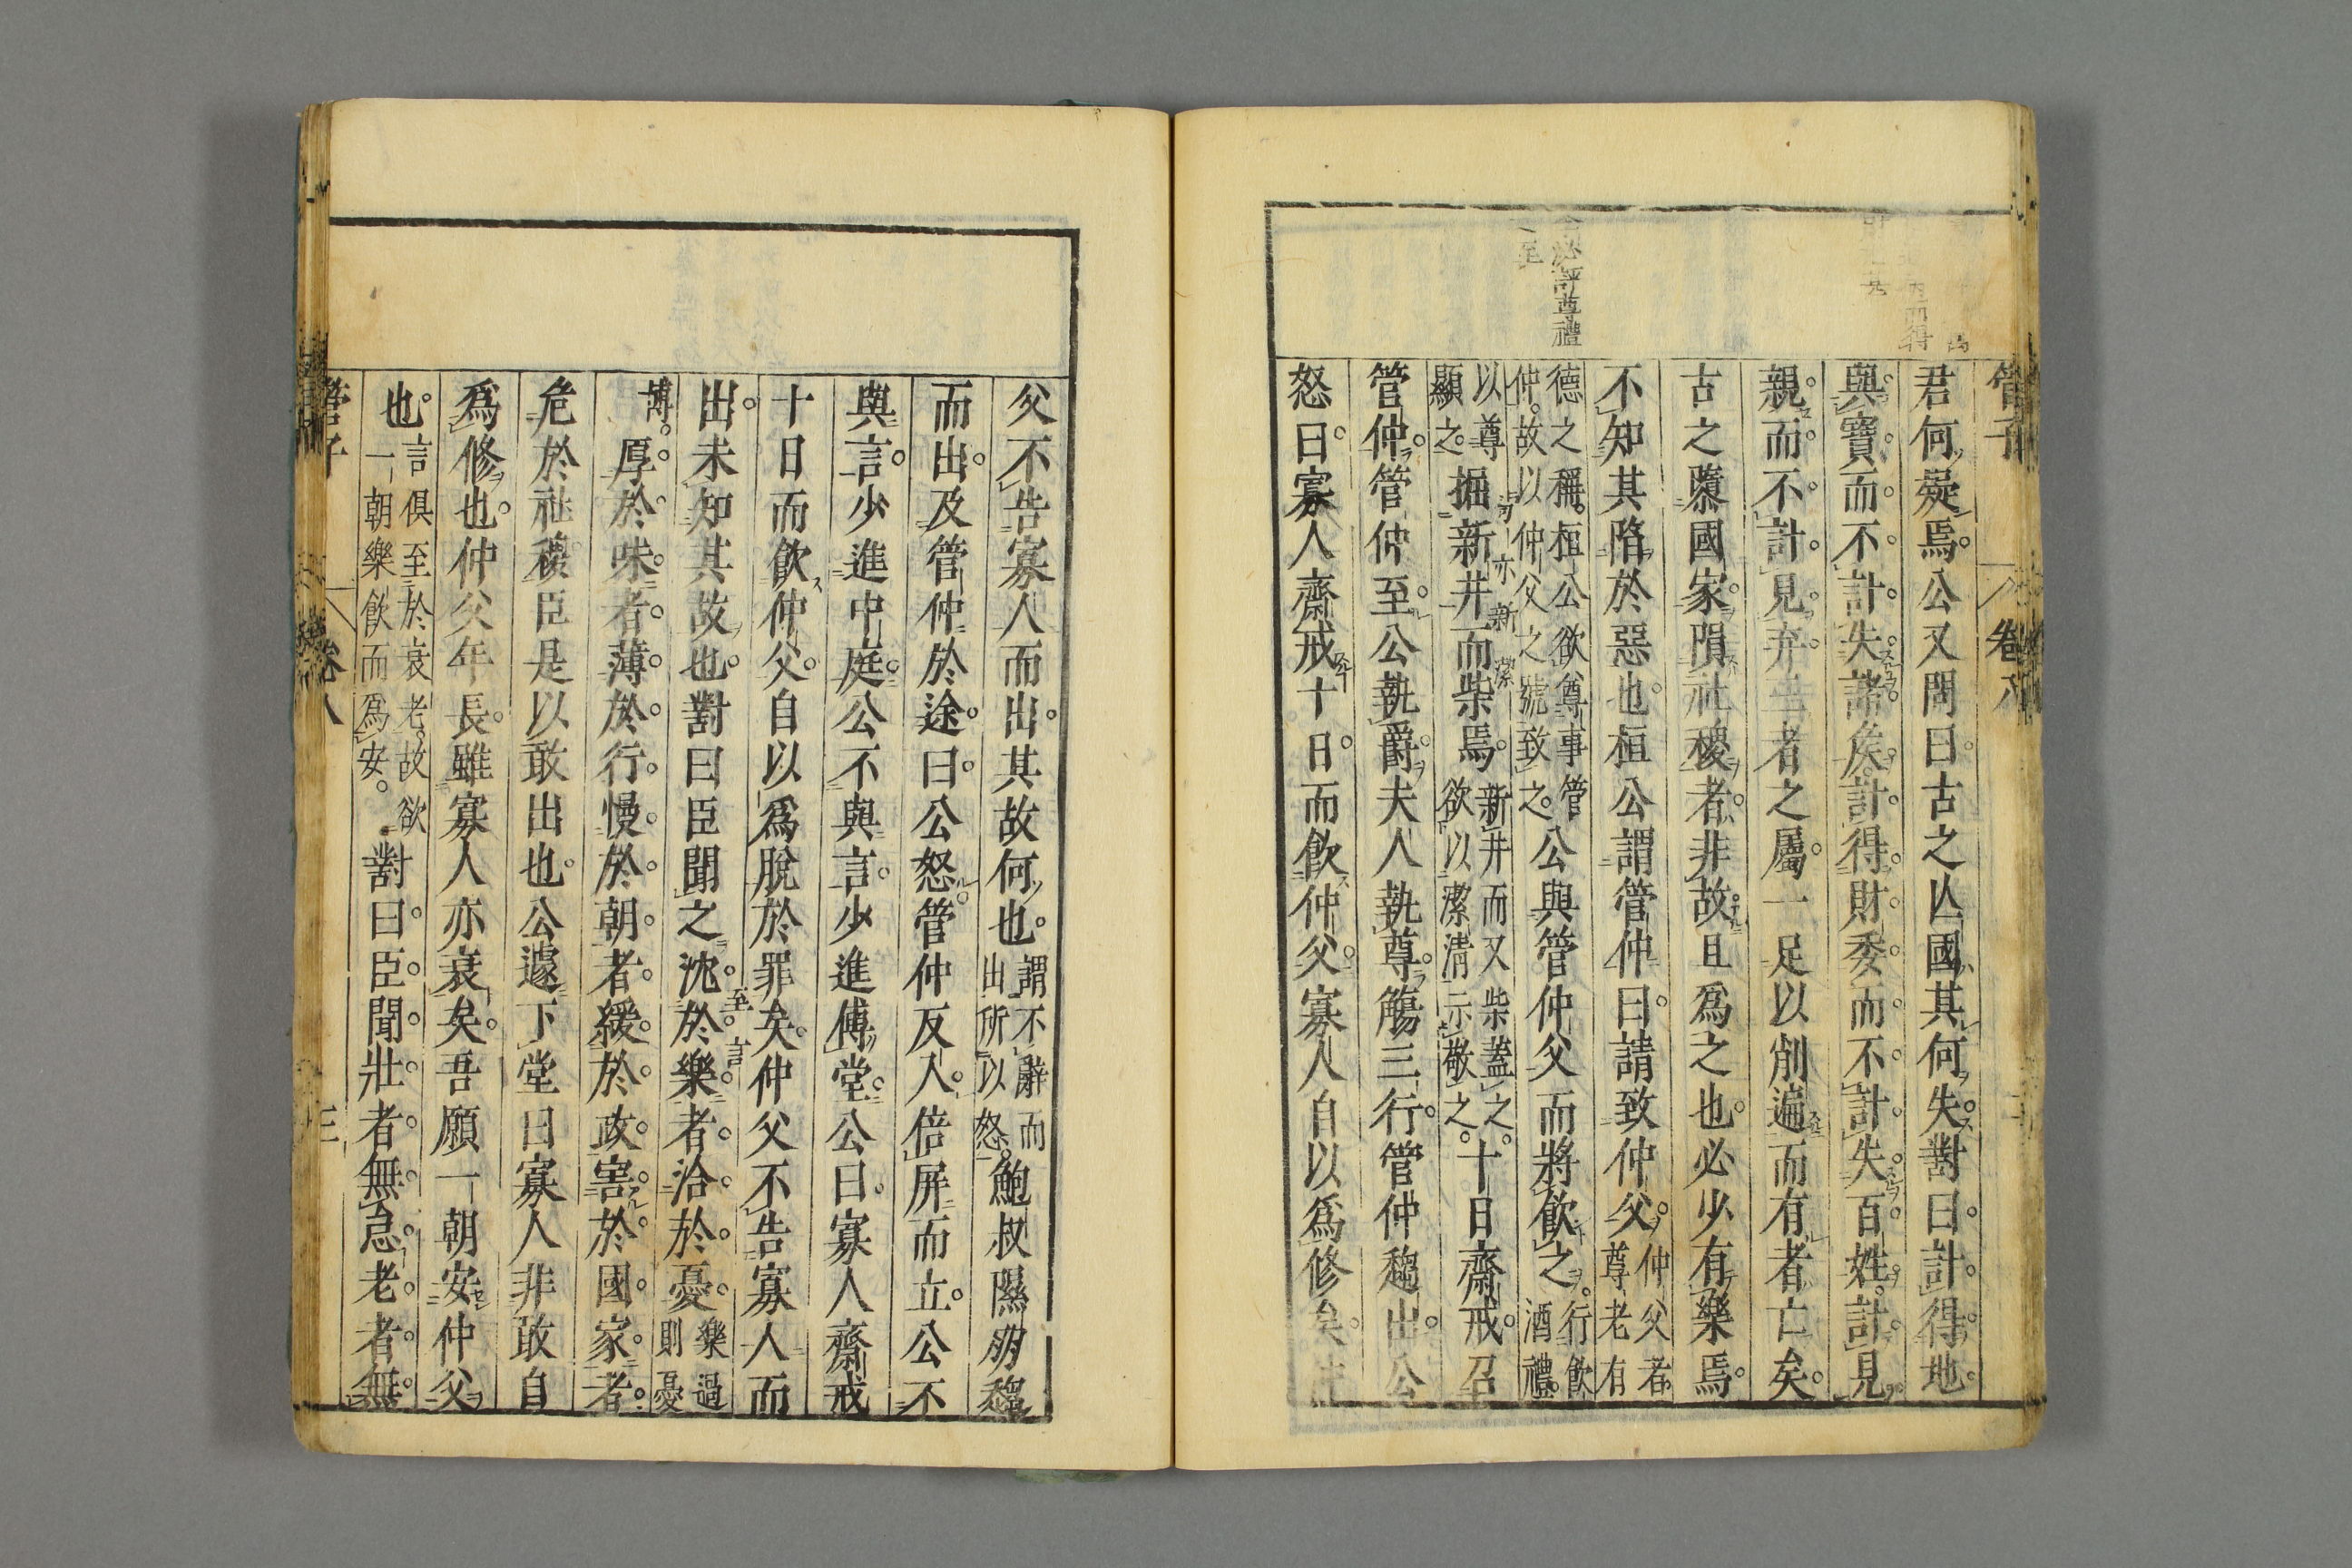 管子
卷八
君何疑焉公又問曰古之亾國其何失對曰計得地
與寶而不計失諸矦計得財委而不計失百姓計見
親而不計見弃三者之屬一足以削遍而有者亡矣
古之隳國家隕社稷者非故且爲之也必少有樂焉
不知其陷於惡也桓公謂管仲曰請致仲父仲父者尊老有
德之稱桓公欲尊事管仲故以仲父之號致之公與管仲父而將飮之行飮酒禮
以尊顯之掘新井而柴焉新井而又柴蓋之欲以潔淸示敬之十日齋戒召
管仲管仲至公執爵夫人執尊觴三行管仲趨出公
怒曰寡人齋戒十日而飮仲父寡人自以爲修矣
父不告寡人而出其故何也謂不辭而出所以怒鮑叔隰朋趨
而出及管仲於途曰公怒管仲反入倍屏而立公不
與言少進中庭公不與言少進傅堂公曰寡人齋戒
十日而飮仲父自以爲脫於罪矣仲父不告寡人而
出未知其故也對曰臣聞之沈於樂者洽於憂樂過則憂
博厚於味者薄於行慢於朝者緩於政害於國家者
危於社稷臣是以敢出也公遽下堂曰寡人非敢自
爲修也仲父年長雖寡人亦衰矣吾願一朝安仲父
也言俱至於衰老故欲一朝樂飮而爲安對曰臣聞壯者無怠老者無
管子
卷八
三